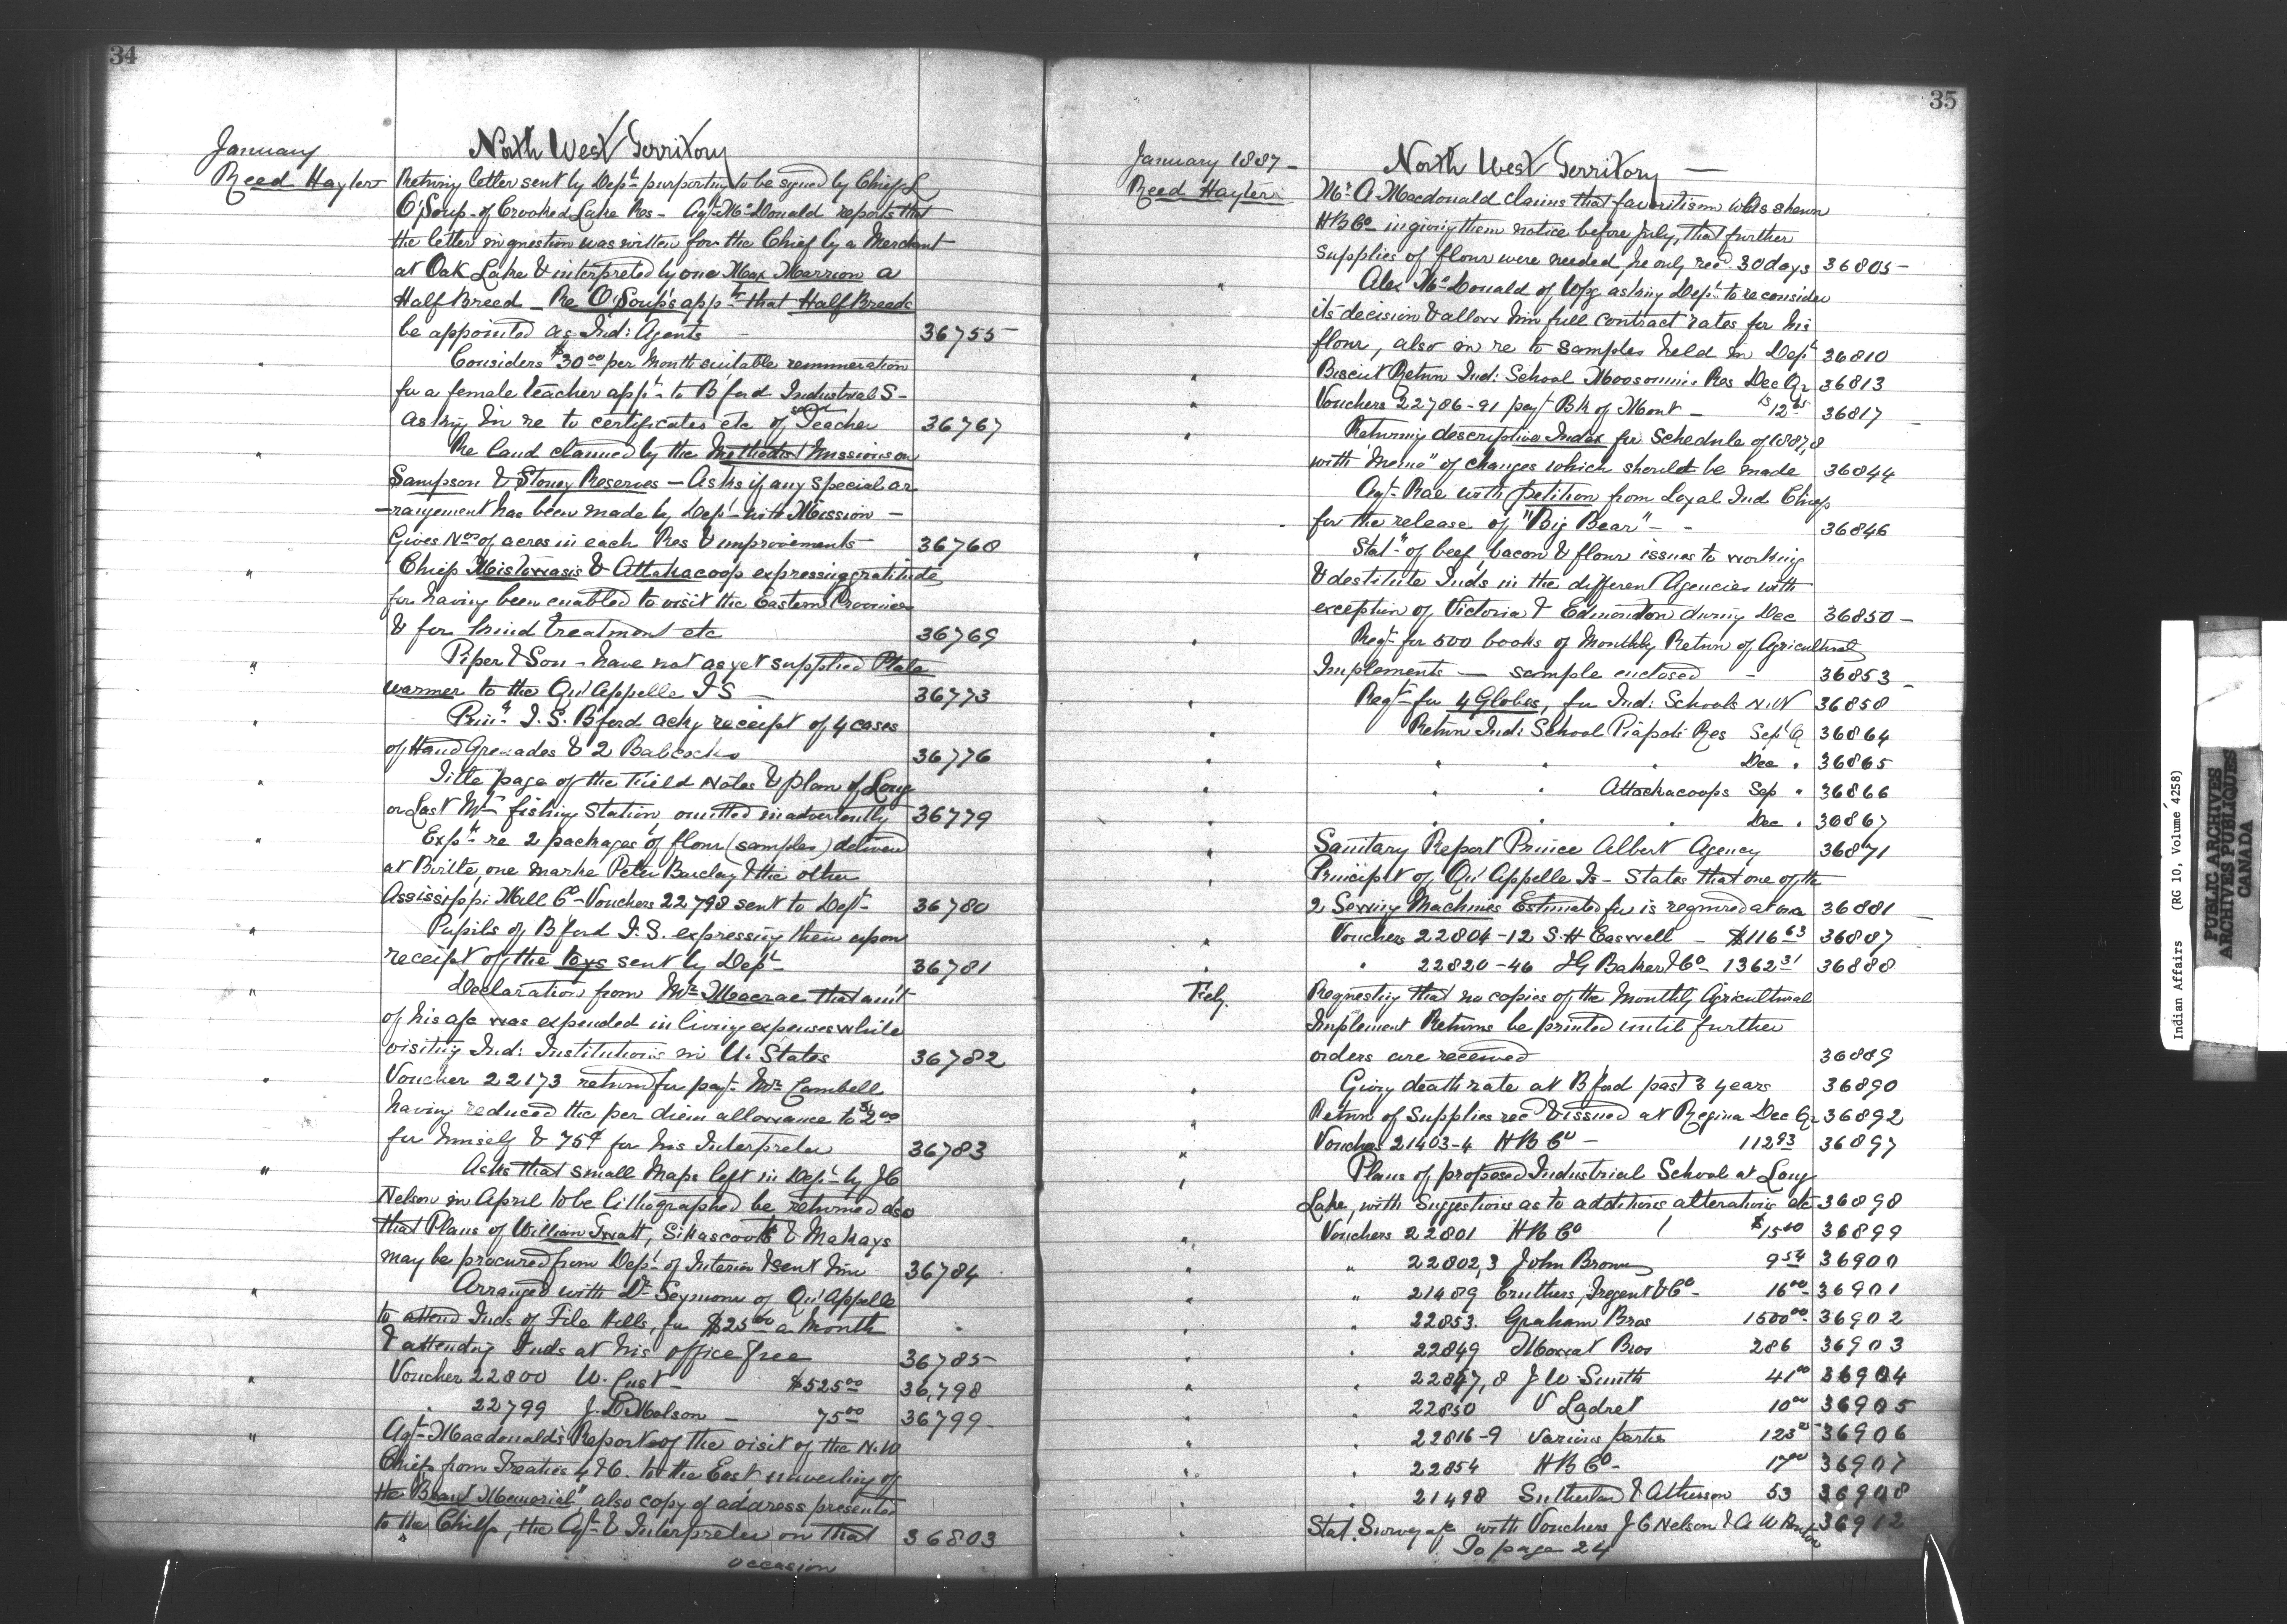 34
January
North West Territory
Reed Hayter Returning letter sent by Dept purporting to be signed by Chief L
O'Soup of Crooked Lake Res - Agt McDonald reports that
the letter in question was written for the Chief by a Merchant
at Oak Lake & interpreted by one Max Marrion a
Half Breed _ Re O'Soup's appt that Half Breeds
be appointed as Ind: Agents 36755
" Considers $30.00 per Month suitable remuneration
for a female teacher appt to B'ford Industrial S -
Asking in re to certificates etc of Teacher 36767
" Re land claimed by the Methodist Missions on
Sampson & Stoney Reserves - Asks if any special ar
-rangement has been made by Dept with Mission -
Gives Nos of acres in each Res & improvements 36768
" Chiefs Mistowasis & Attahacoop expressing gratitude
for having been enabled to visit the Eastern Provinces
& for kind treatment etc 36769
" Piper & Son - have not as yet supplied Plate
warmer to the Qu'Appelle I S - 36773
" Prin. I. S. B'ford ackg receipt of 4 cases
of Hand Grenades & 2 Babcocks 36776
" Title page of the Field Notes & plan of Long
or Last Mn fishing Station, omitted inadvertently 36779
" Expn re 2 packages of flour (samples) delivered
at Birtle, one marke Peter Barclay & the other
Assissippi Mill Co - Vouchers 22798 sent to Dept 36780
" Pupils of B'ford I. S. expressing their upon
receipt of the toys sent by Dept 36781
" Declaration from Mr Macrae that amt
of his a/c was expended in living expenses while
visiting Ind: Institutions in U. States 36782
" Voucher 22173 returned for payt Mr Cambell
having reduced the per diem allowance to $2.00
for himself & 75¢ for his Interpreter 36783
" Asks that small Maps left in Dept by J C
Nelson in April to be lithographed be returned also
that Plans of William Twatt, Sikascoots & Mahays
may be procured from Dept of Interior & sent him 36784
" Arranged with Dr Seymour of Qu'Appelle
to attend Inds of File Hills, for $25.00 a Month
& attending Inds at his office free 36785
" Voucher 22800 W. Cust - $525.00 36,798
" 22799 J. D Molson - 75.00 36799
" Agt Macdonald's Report of the visit of the N.W
Chiefs from Treaties 4 & 6. to the East unveiling of
the "Brant Memorial", also copy of address presented
to the Chiefs, the Agt & Interpreter on that 36803
occasion
35
January 1887 -
North West Territory -
Reed Hayter Mr A Macdonald claims that favoritism was shewn
H B Co in giving them notice before July, that further
supplies of flour were needed, he only recd 30 days 36805 -
" Alex McDonald of Wpg asking Dept to reconsider
its decision & allow him full contract rates for his
flour, also in re to samples held in Dept 36810
" Biscuit Return Ind: School Moosomin's Res Dec Qr 36813
" Vouchers 22786-91 payt Bk of Mont - 36817
" Returning descriptive Index for Schedule of 1887,8
with "Memo" of changes which should be made 36844
Agt Rae with petition from Loyal Ind Chiefs
for the release of "Big Bear" - 36846
" Statt of beef, bacon & flour issues to working
& destitute Inds in the different Agencies with
exception of Victoria & Edmonton during Dec 36850 -
" Reqn for 500 books of Monthly Return of Agricultural
Implements - sample enclosed - 36853 -
" Reqn for 4 Globes, for Ind: Schools N.W 36858
" Return Ind: School Piapots Res Sept Q 36864
" " " " Dec " 36865
" " " Attachacoops Sep " 36866
" " " " Dec " 36867
" Sanitary Report Prince Albert Agency 36871
" Principl of Qu'Appelle Is - States that one of the
2 Sewing Machines Estimated for is required at once 36881
" Vouchers 22804-12 S. H Caswell - $116.63 36887
" " 22820-46 I G Baker & Co - 1362.31 36888
Tely. Requesting that no copies of the Monthly Agricultural
Implement Returns be printed until further
orders are received 36889
" Giving death rate at B'ford past 3 years 36890
" Return of Supplies recd & issued at Regina Dec Qr 36892
" Vouchers 21403-4 H B Co - 112.93 36897
" Plans of proposed Industrial School at Long
Lake, with suggestions as to additions alterations etc 36898
Vouchers 22801 H B Co $15.00 36899
" " 22802,3 John Brown 9.54 36900
" " 21489 Cruthers, Tregent & Co - 16.00 36901
" " 22853. Graham Bros 1500.00 36902
" " 22849 Mowat Bros 286 36903
" " 22847,8 J W Smith 41.00 36904
" " 22850 V Ladret 10.00 36905
" " 22816-9 Various parties 36906
" " 22854 H B Co - 17.00 36907
" " 21498 Sutherland & Atkinson 53 36908
" Stat. Survey a/c with Vouchers J C Nelson & A W Ponton 36912
To page 24
Indian Affairs (RG 10, Volume 4258)
PUBLIC ARCHIVES
ARCHIVES PUBLIQUES
CANADA